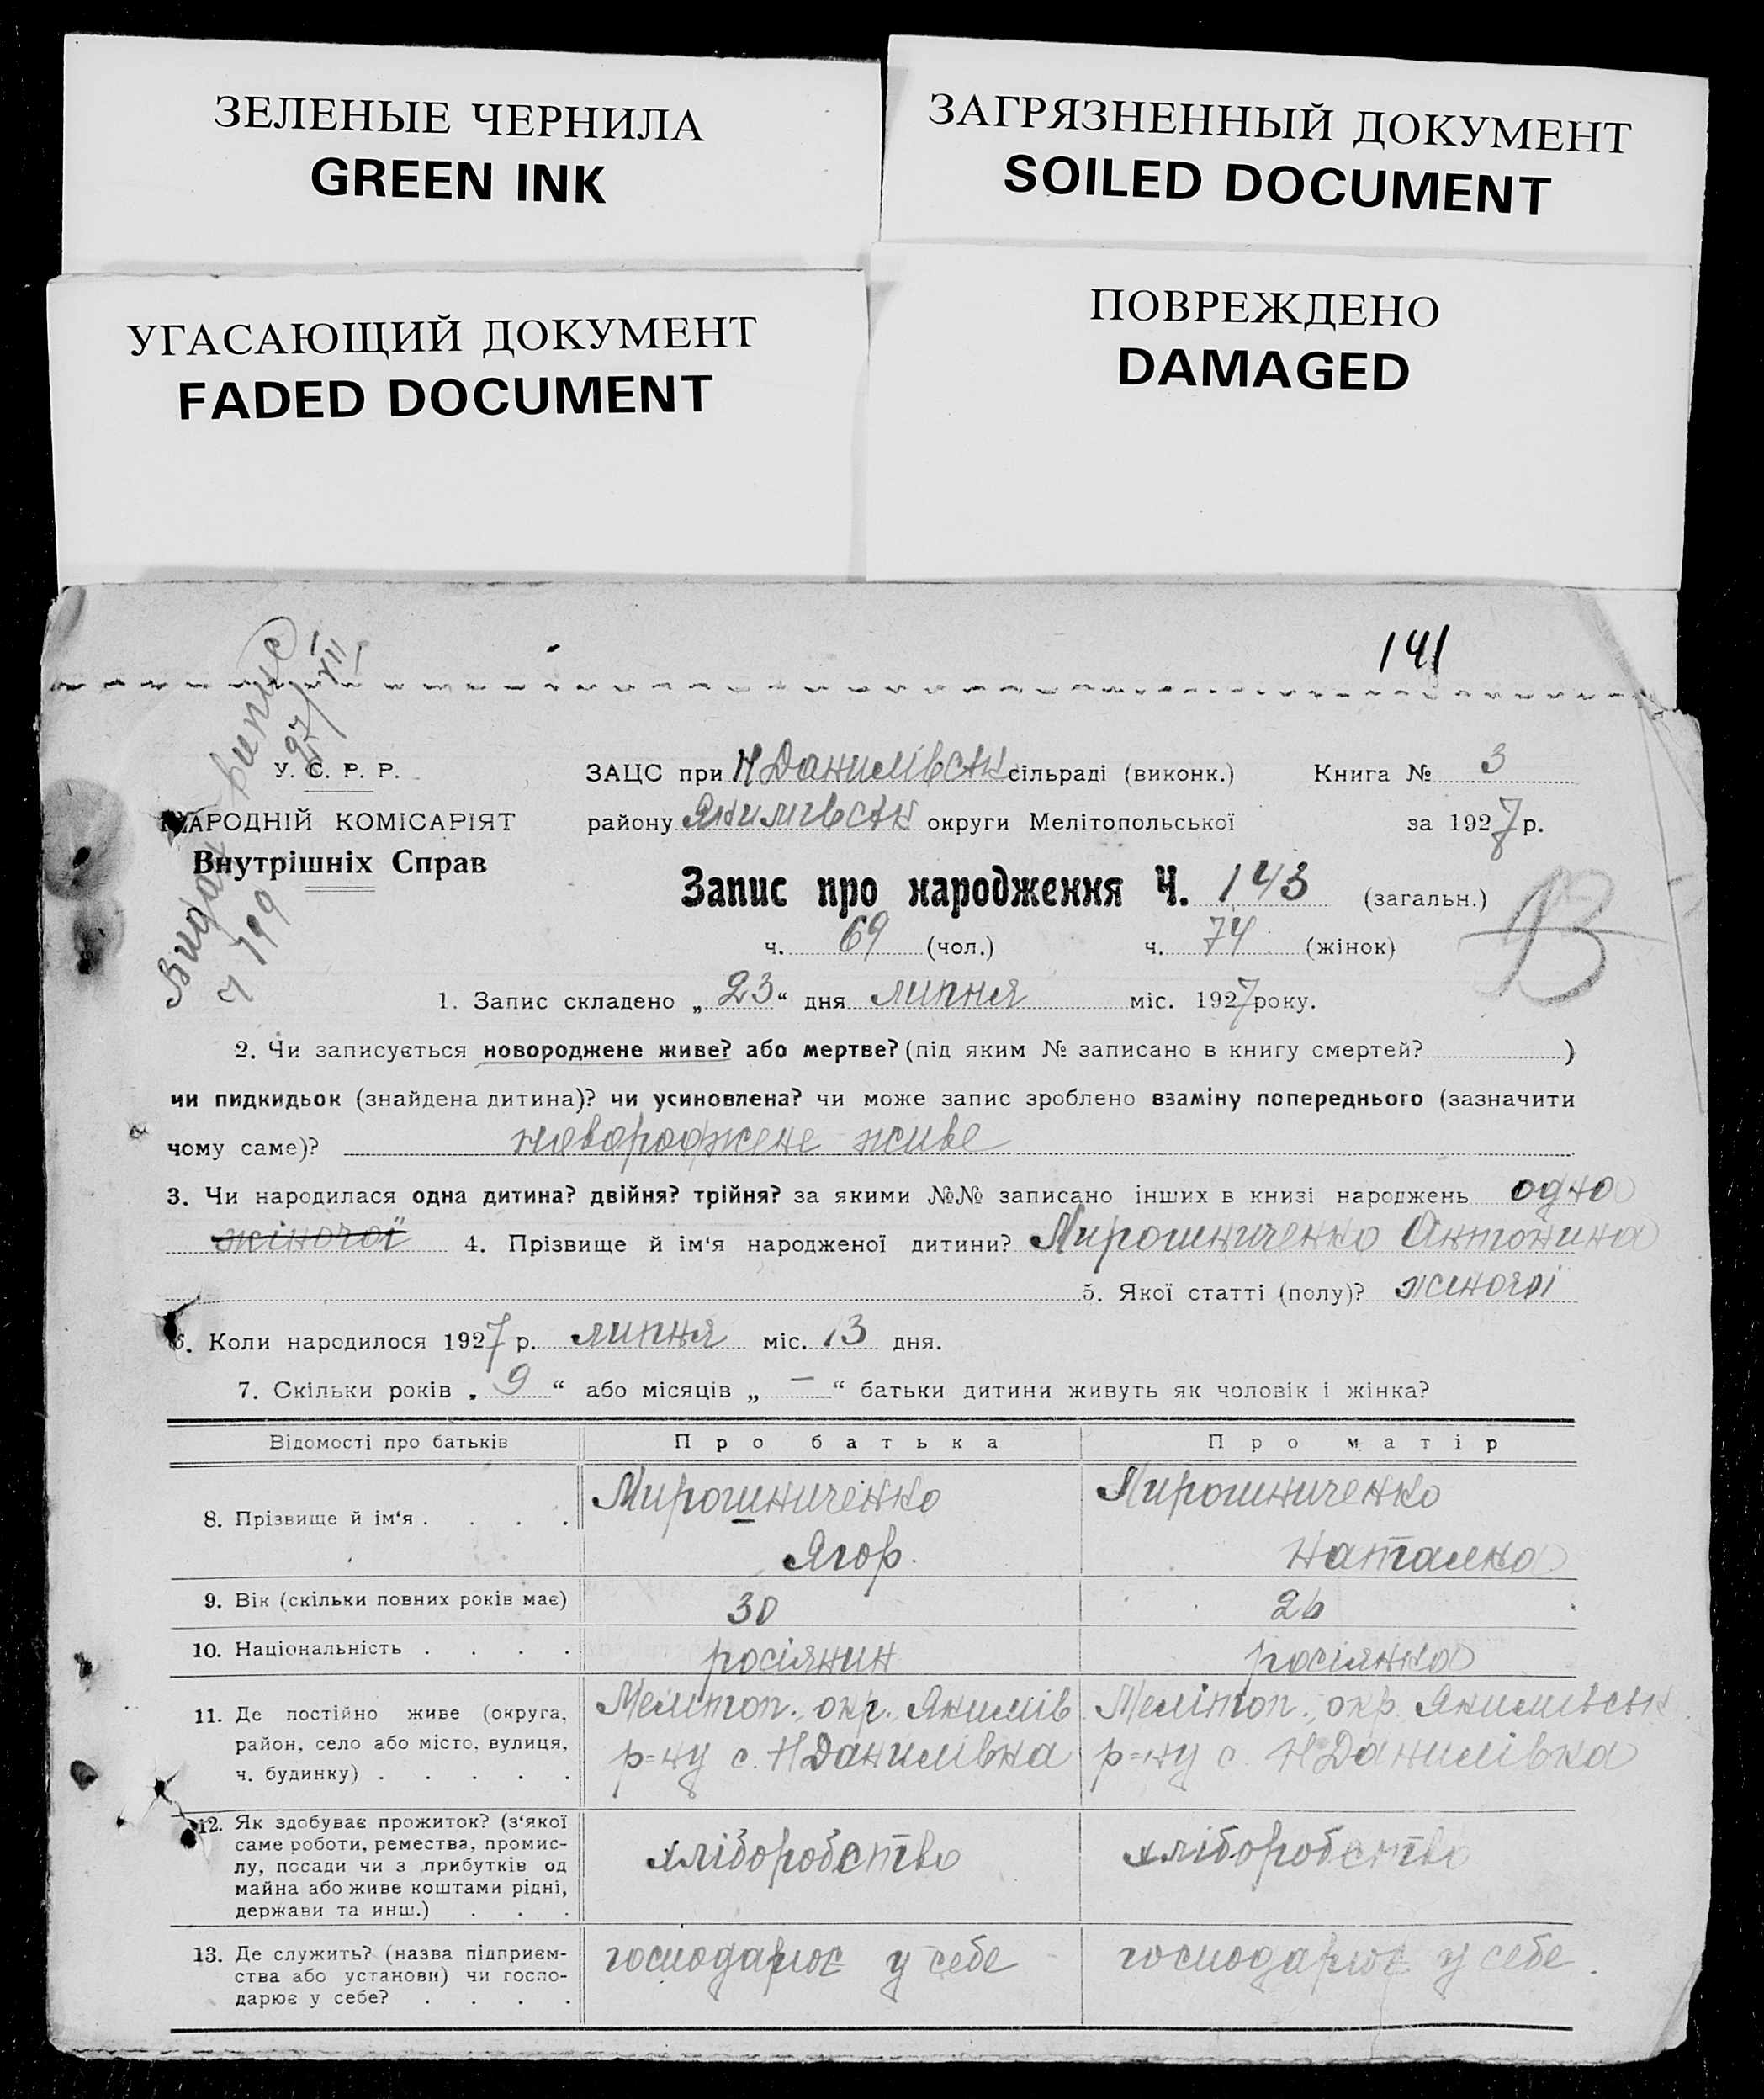 ЗЕЛЕНЫЕ ЧЕРНИЛА
GREEN INK
ЗАГРЯЗНЕННЫЙ ДОКУМЕНТ
SOILED DOCUMENT
УГАСАЮЩИЙ ДОКУМЕНТ
FADED DOCUMENT
ПОВРЕЖДЕНО
DAMAGED
141
Видан випис
ч 199 27/VII
У. С. Р. Р.
НАРОДНІЙ КОМІСАРІЯТ
Внутрішніх Справ
ЗАЦС при Н Данилівськ сільраді (виконк.) Книга № 3
району Якимівськ округи Мелітопольської за 1927 р.
Запис про народження Ч. 143 (загальн.)
ч. 69 (чол.) ч. 74 (жінок)
1. Запис складено „23“ дня липня міс. 1927 року.
2. Чи записується новороджене живе? або мертве? (під яким № записано в книгу смертей? )
чи пидкидьок (знайдена дитина)? чи усиновлена? чи може запис зроблено взаміну попереднього (зазначити
чому саме)? новороджене живе
3. Чи народилася одна дитина? двійня? трійня? за якими №№ записано інших в книзі народжень одна
жіночої 4. Прізвище й ім‘я народженої дитини? Мирошниченко Антонина
5. Якої статті (полу)? жіночої
6. Коли народилося 1927 р. липня міс. 13 дня.
7. Скільки років „9“ або місяців „—“ батьки дитини живуть як чоловік і жінка?
Відомості про батьків Про батька Про матір
8. Прізвище й ім‘я . . . . Мирошниченко Ягор. Мирошниченко Наталка
9. Вік (скільки повних років має) 30 26
10. Національність . . . . росіянин росіянка
11. Де постійно живе (округа,
район, село або місто, вулиця,
ч. будинку) . . . . .
Мелітоп. окр. Якимів
р=ну с. Н Данилівка
Мелітоп. окр. Якимівськ
р=ну с. Н Данилівка
12. Як здобуває прожиток? (з‘якої
саме роботи, ремества, промис-
лу, посади чи з прибутків од
майна або живе коштами рідні,
держави та инш.) . . .
хліборобство
хліборобство
13. Де служить? (назва підприєм-
ства або установи) чи госпо-
дарює у себе? . . . .
господарює у себе
господарює у себе.